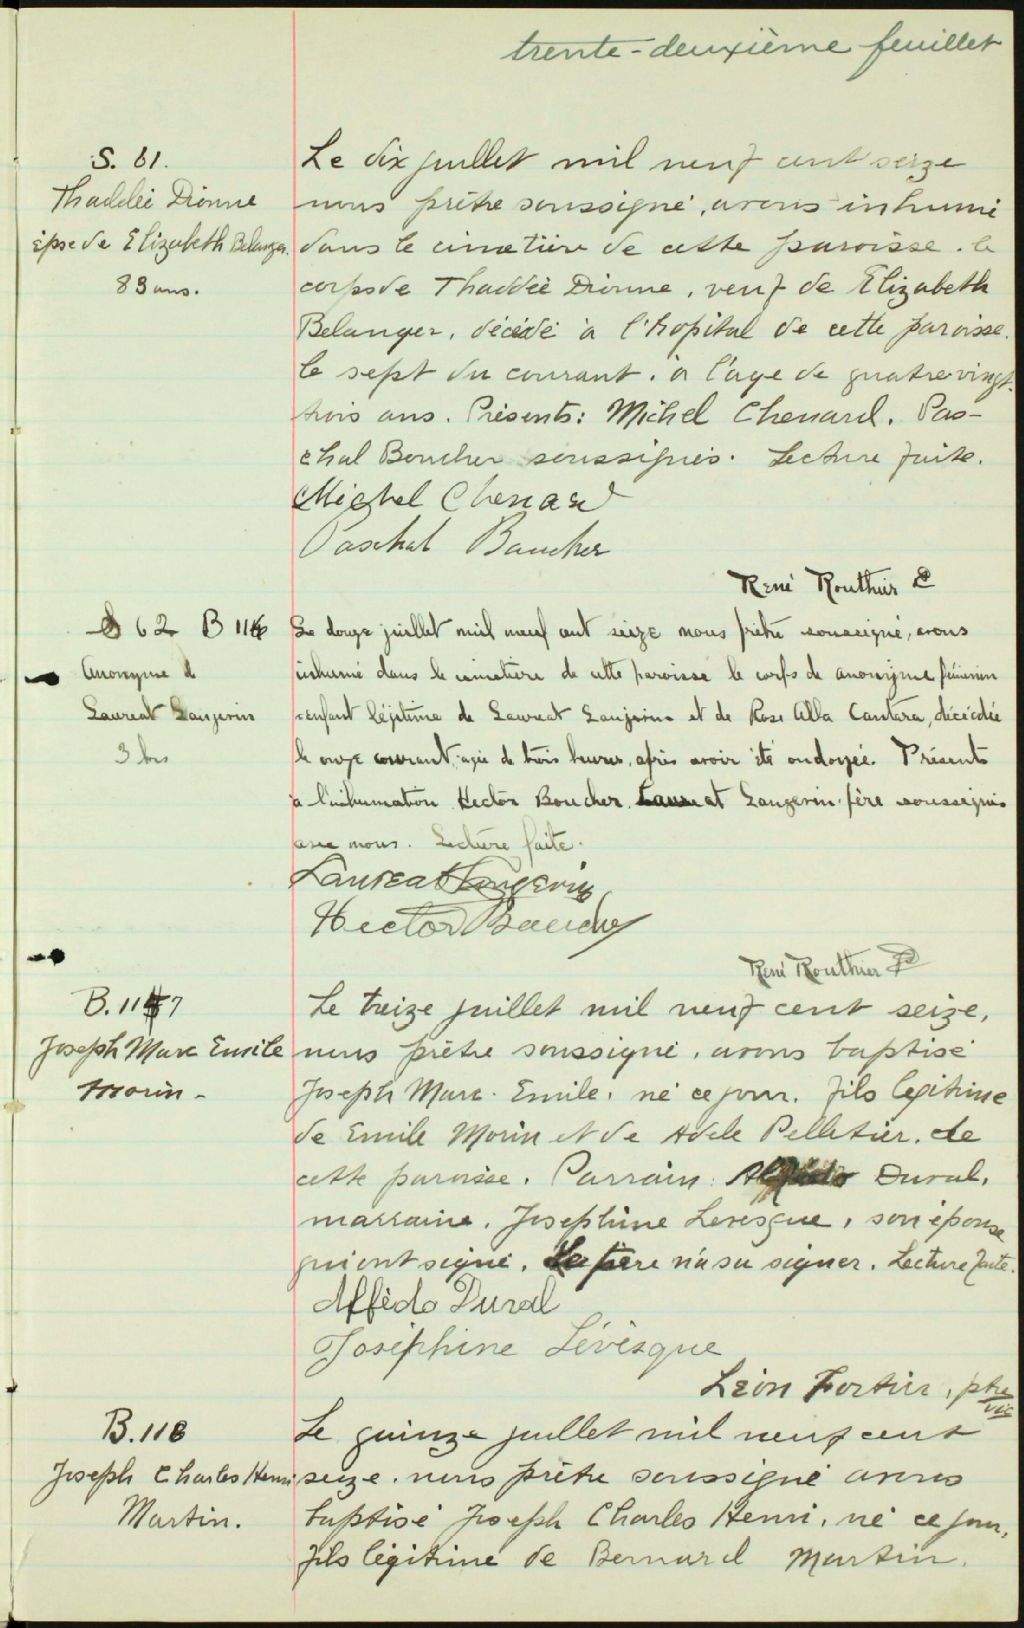 trente-deuxième feuillet
S. 61.
Thaddée Dionne
épse de Elizabeth Belanger.
83 ans.
Le dix juillet mil neuf cent seize
nous prêtre soussigné, avons inhumé
dans le cimetière de cette paroisse. le
corps de Thaddée Dionne, veuf de Elizabeth
Belanger, décédé à l'hopital de cette paroisse.
le sept du courant, à l'age de quatrevingt-
trois ans. Présents: Michel Chenard, Pas-
chal Boucher soussignés. Lecture faite.
Michel Chenard
Paschal Boucher
René Routhier
S 62 B 116
Anonyme de
Laureat Langevin
3 hrs
Le douze juillet mil neuf cent seize nous prêtre soussigné, avons
inhumé dans le cimetière de cette paroisse le corps de anonyme féminin
enfant légitime de Laureat Langevin et de Rose Alba Cantara, décédée
le onze courant, agée de trois heures, après avoir été ondoyée. Présents
à l'inhumation Hector Boucher, Laureat Langevin père soussignés
avec nous. Lecture faite.
Laureat Langevin
Hector Boucher
René Routhier
B. 117
Joseph Marc Emile
Morin.-
Le treize juillet mil neuf cent seize,
nous prêtre soussigné, avons baptisé
Joseph Marc. Emile, né ce jour. fils légitime
de Emile Morin et de Adele Pelletier. de
cette paroisse. Parrain: Duval,
marraine, Josephine Levesque, son épouse
qui ont signé. Le père n'a su signer. Lecture faite.
Alfédo Duval
Joséphine Lévèsque
Léon Fortier, ptre
vic
B. 118
Joseph Charles Henri
Martin.
Le quinze juillet mil neuf cent
seize. nous prêtre soussigné avons
baptisé Joseph Charles Henri, né ce jour,
fils légitime de Bernard Martin.